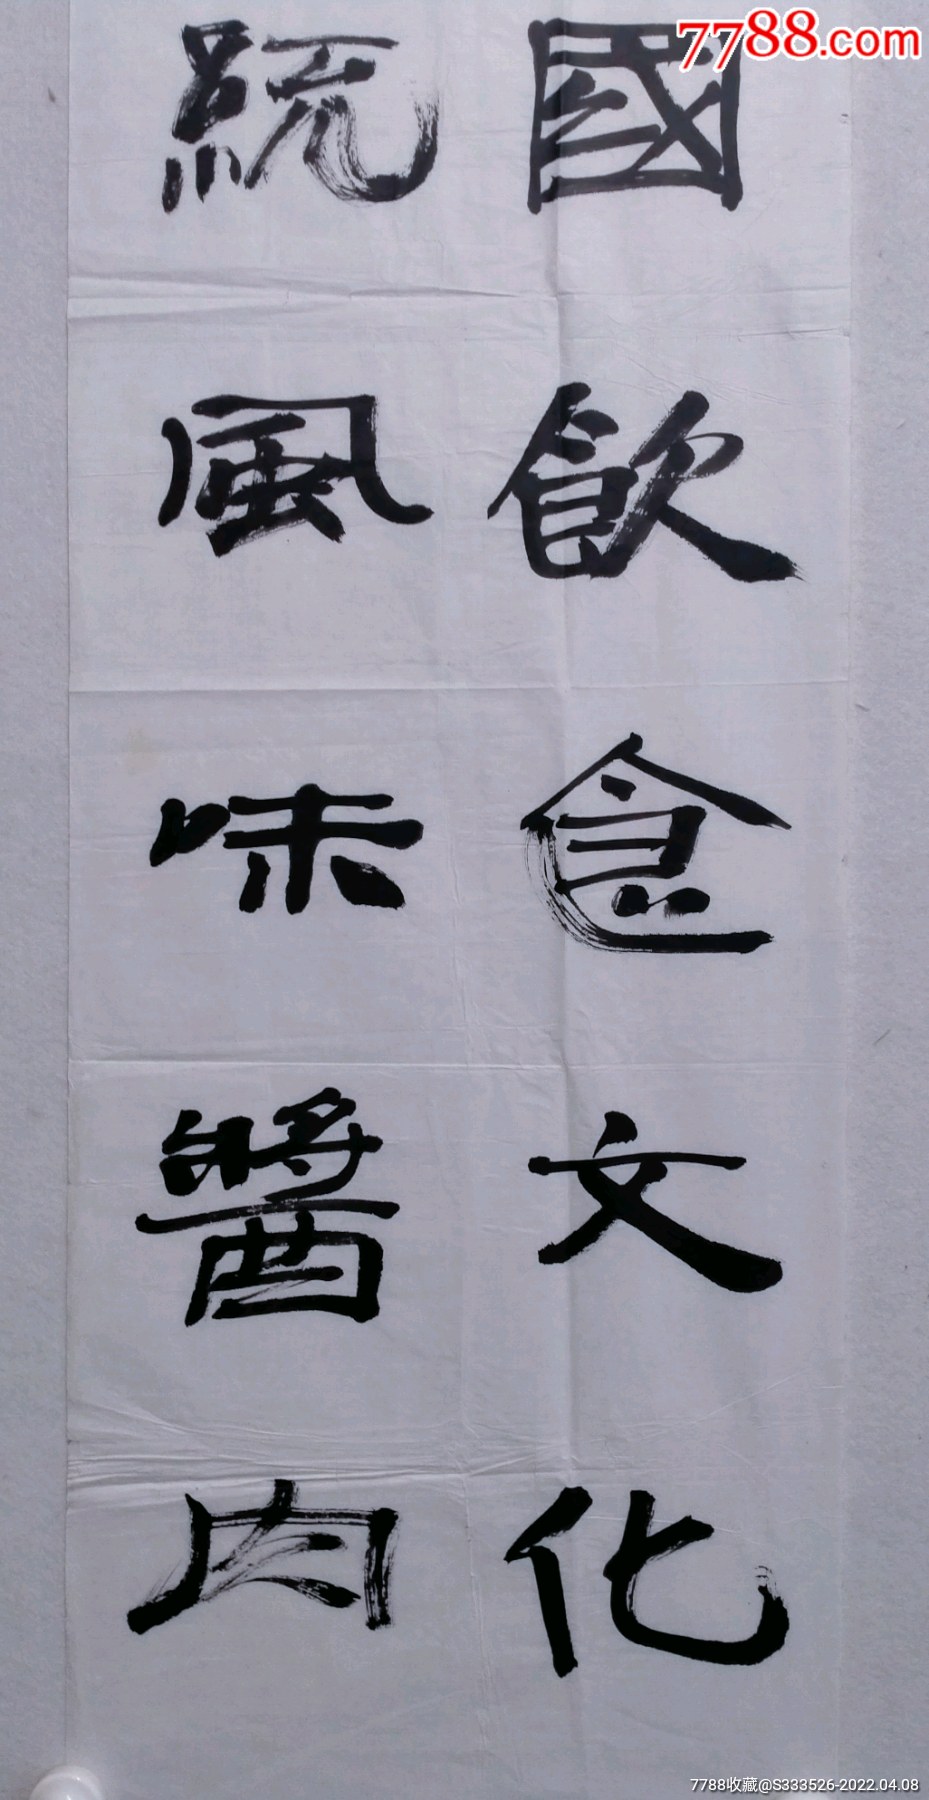 7788.com
國飲食文化
統風味醬肉
7788收藏@S333526-2022.04.08